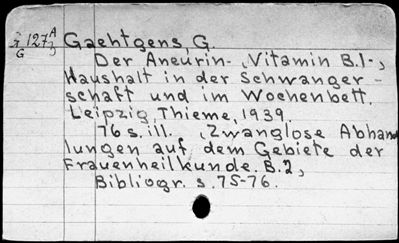 127 A/3 Gaehtgens, G.
G
Der Aneurin-, Vitamin B.1-,
Haushalt in der Schwanger-
schaft und im Wochenbett.
Leipzig, Thieme, 1939.
76 s. ill. (Zwanglose Abhand
lungen auf dem Gebiete der
Frauenheilkunde. B.2)
Bibliogr. s. 75-76.